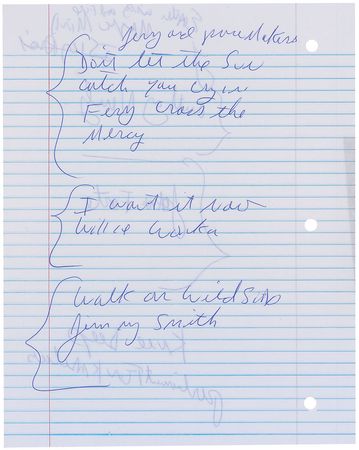 Jerry and paceMakers
Don't let the Sun
catch you cryin
Ferry cross the
Mercy
I want it now
Willie Wonka
Walk on Wild Side
Jimmy Smith